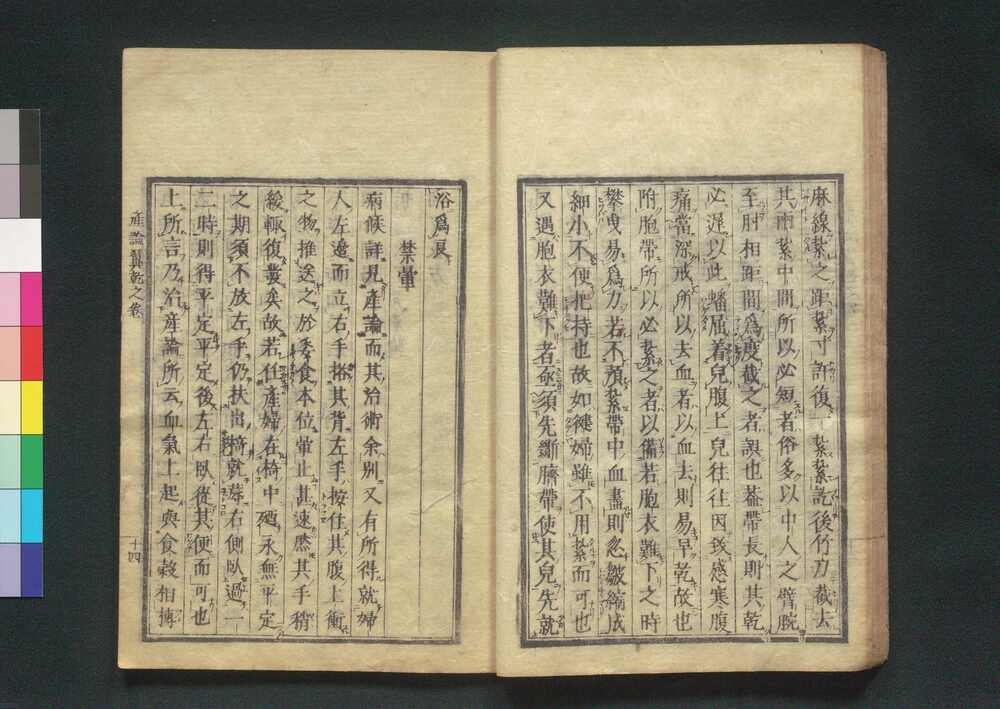 麻線紮之距紮寸許復一紮紮訖後竹刀截去
其兩紮中間所以必短者俗多以中人之臂腕
至肘相距間爲度截之者誤也葢帶長則其乾
必遲以此蟠屈着兒腹上兒往往因致感寒腹
痛當深戒所以去血者以血去則易早乾故也
附胞帶所以必紮之者以備若胞衣難下之時
攀曳易爲力若不預紮帶中血盡則忽皺縮成
細小不便把持也故如後婦雖不用紮而可也
又遇胞衣難下者亟須先斷臍帶使其兒先就
浴爲良
禁暈
病候詳見產論而其治術余別又有所得就婦
人左邊而立右手搭其背左手按住其腹上衝
之物推送之於委食本位暈止甚速然其手稍
緩輒復發矣故若在產婦在椅中廼永無平定
之期須不放左手仍扶出椅就蓐右側臥過一
二時則得平定平定後左右臥從其便而可也
上所言乃治產論所云血氣上起與食榖相搏
產論翼乾之卷
十四